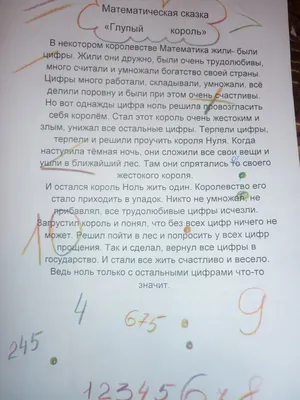 Математическая сказка
«Глупый король»
В некотором королевстве Математика жили- были
цифры. Жили они дружно, были очень трудолюбивы,
много считали и умножали богатство своей страны.
Цифры много работали, складывали, умножали, всё
делили поровну и были при этом очень счастливы.
Но вот однажды цифра ноль решила провозгласить
себя королём. Стал этот король очень жестоким и
злым, унижал все остальные цифры. Терпели цифры,
терпели и решили проучить короля Нуля. Когда
наступила тёмная ночь, они сложили все свои вещи и
ушли в ближайший лес. Там они спрятались то своего
жестокого короля.
И остался король Ноль жить один. Королевство его
стало приходить в упадок. Никто не умножал, не
прибавлял, все трудолюбивые цифры исчезли.
Загрустил король и понял, что без всех цифр ничего не
может. Решил пойти в лес и попросить у всех цифр
прощения. Так и сделал, вернул все цифры в
государство. И стали все жить счастливо и весело.
Ведь ноль только с остальными цифрами что-то
значит.
10
4
675
9
245
123456